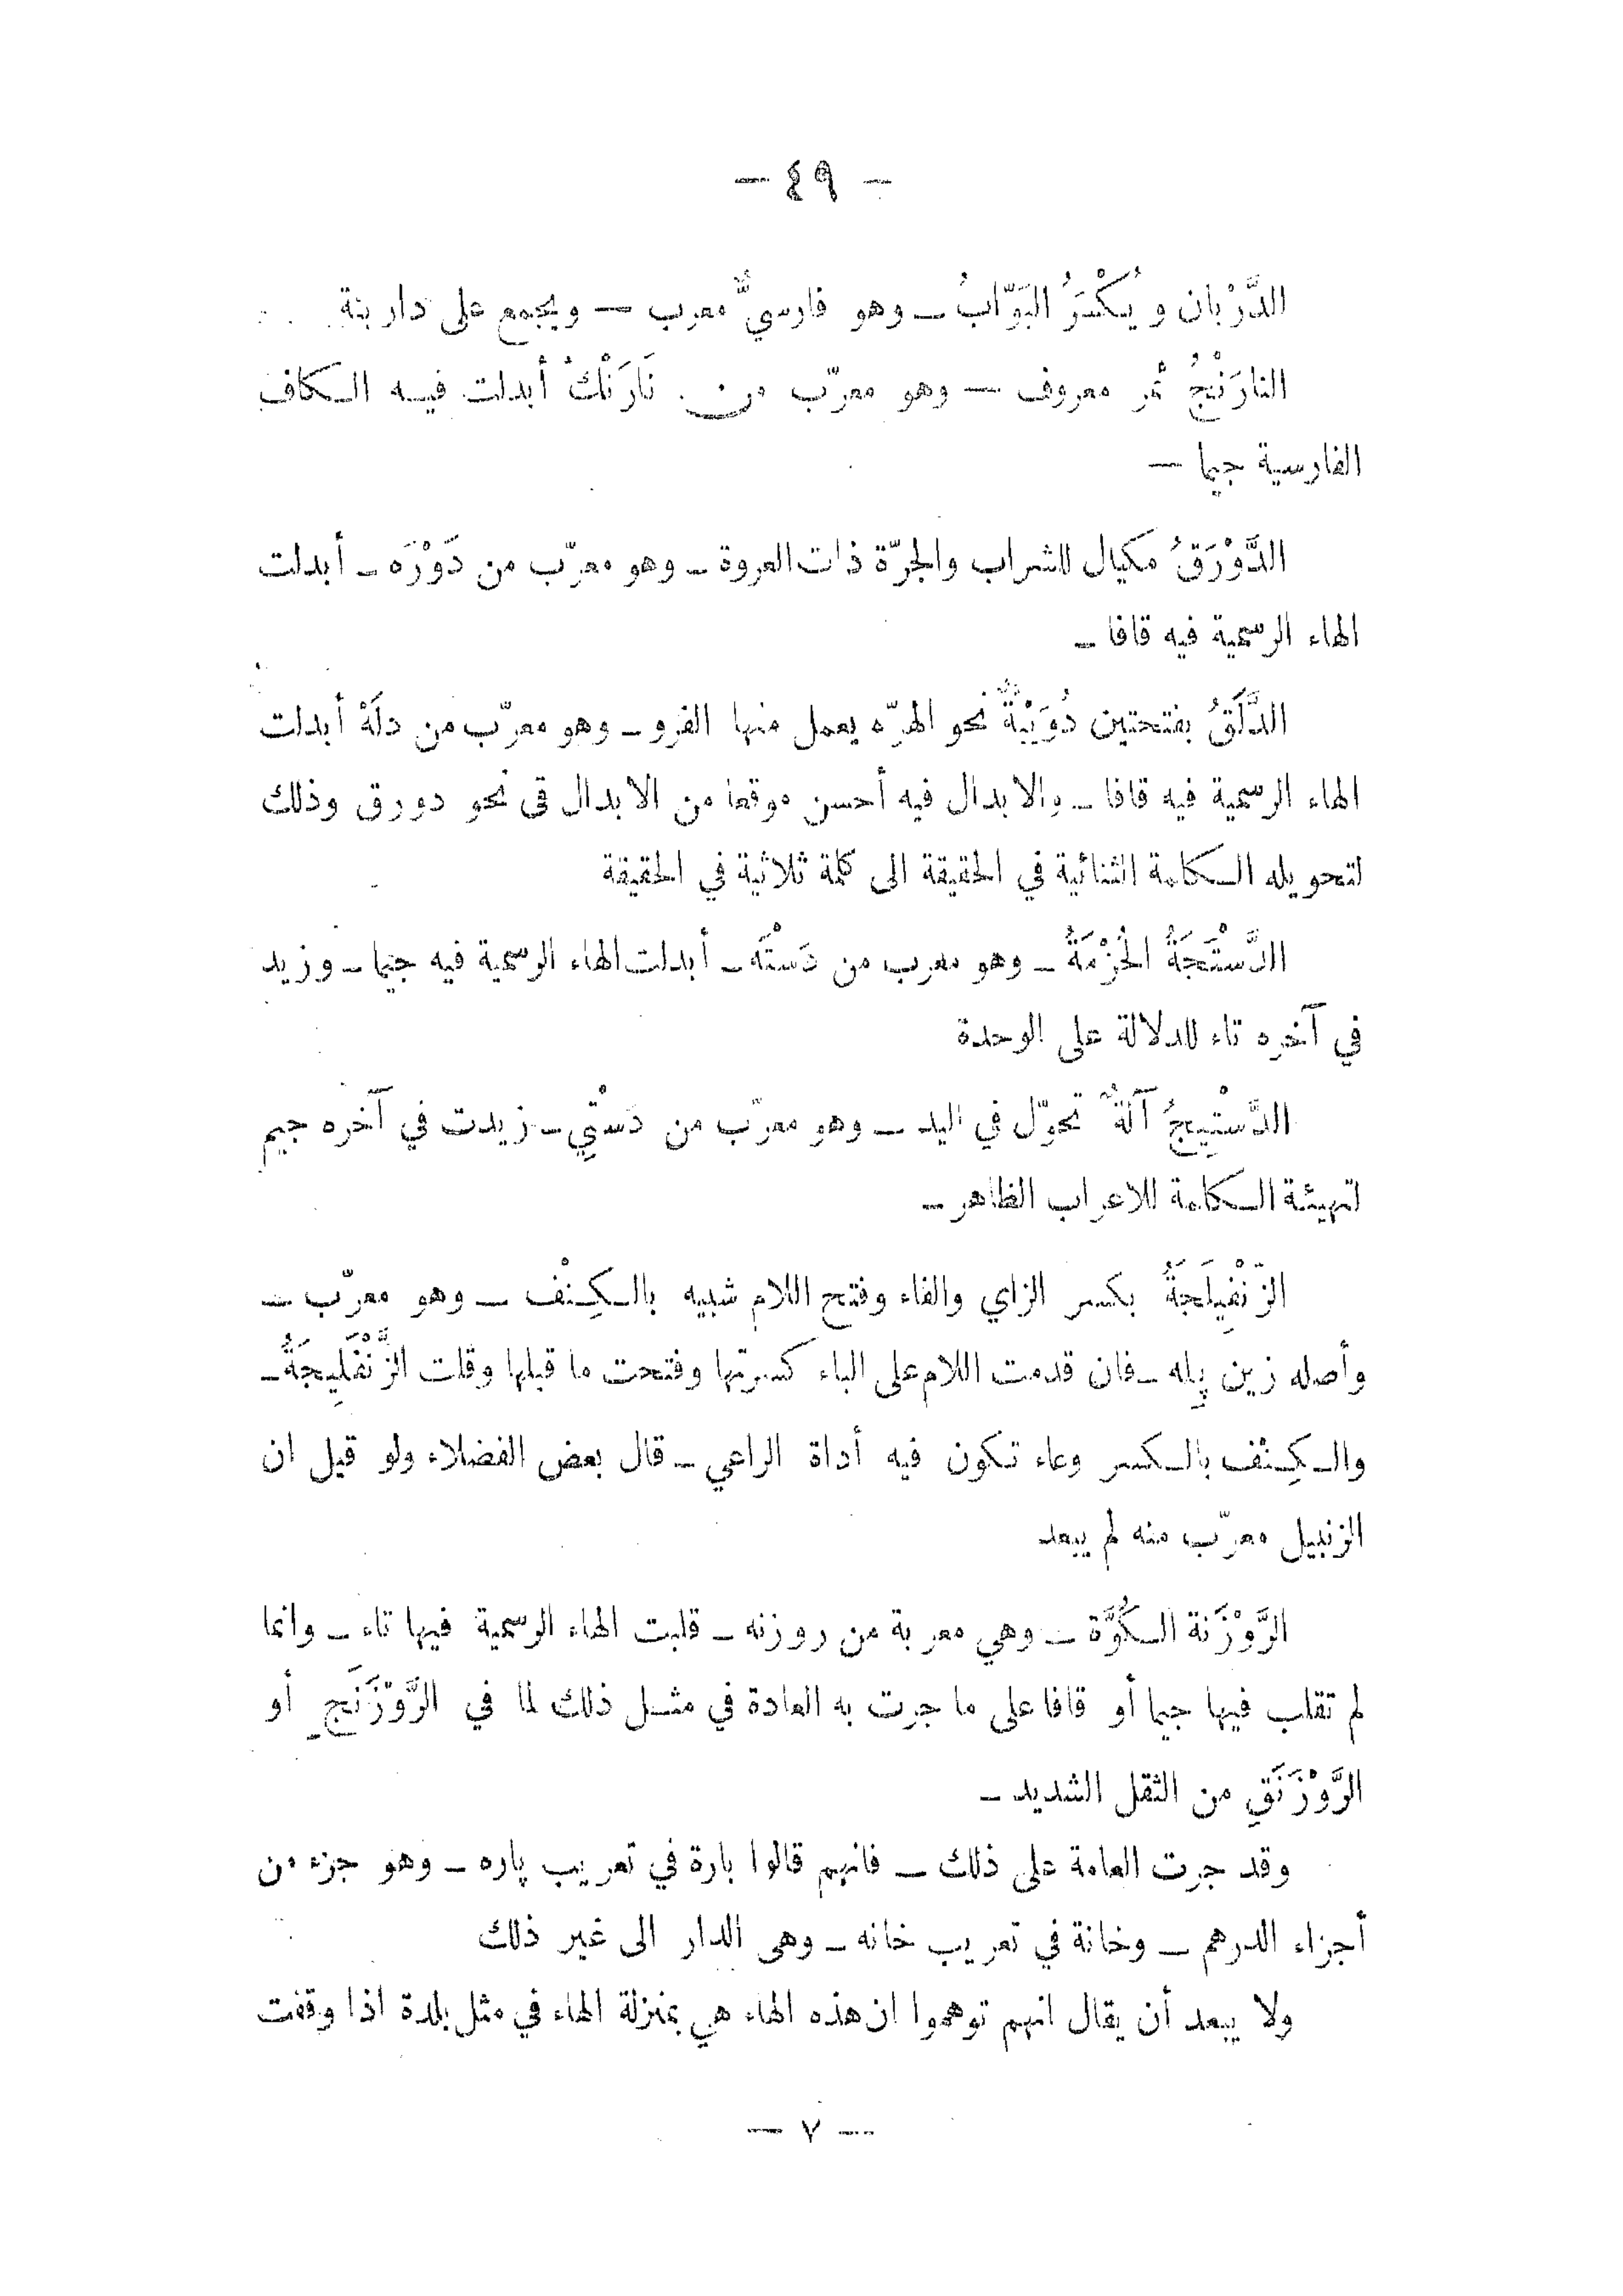 — ٤٩ —
الدَّرْبان ويُكْسَرُ البَوّابُ ــ وهو فارسيٌّ معرب — ويجمع على دار بنة
النارَنْجُ ثمر معروف — وهو معرّب من نَارَنْكُ أبدلت فيه الكاف
الفارسية جيما —
الدَّوْرَقُ مكيال للشراب والجرّة ذات العروة ــ وهو معرّب من دَوْرَه ــ أبدلت
الهاء الرسمية فيه قافا ــ
الدَّلَقُ بفتحتين دُوَيْبَّةٌ نحو الهرّه يعمل منها الفرو ــ وهو معرّب من دلَهْ أبدلت
الهاء الرسمية فيه قافا ــ والابدال فيه أحسن موقعا من الابدال فى نحو دورق وذلك
لتحويله الكلمة الثنائية في الحقيقة الى كلمة ثلاثية في الحقيقة
الدَّسْتَجَةُ الحُزْمَةُ ــ وهو معرب من دَسْتَه ــ أبدلت الهاء الرسمية فيه جيما ــ وزيد
في آخره تاء للدلالة على الوحدة
الدَّسْتِيجُ آلةٌ تحوّل في اليد ــ وهو معرّب من دَسْتِي ــ زيدت في آخره جيم
لتهيئة الكلمة للاعراب الظاهر ــ
الزّنْفِيلَجَةُ بكسر الزاي والفاء وفتح اللام شبيه بالكِنْف ــ وهو معرّب ــ
وأصله زين پيله ــ فان قدمت اللام على الياء كسرتها وفتحت ما قبلها وقلت الزَّنْفَلِيجَةُ ــ
والكِنْف بالكسر وعاء تكون فيه أداة الراعي ــ قال بعض الفضلاء ولو قيل ان
الزنبيل معرّب منه لم يبعد
الرَّوْزَنة الكُوَّة ــ وهي معربة من روزنه ــ قلبت الهاء الرسمية فيها تاء ــ وانما
لم تقلب فيها جيما أو قافا على ما جرت به العادة في مثل ذلك لما في الرَّوْزَنَج أو
الرَّوْزَنَقِ من الثقل الشديد ــ
وقد جرت العامة على ذلك ــ فانهم قالوا بارة في تعريب پاره ــ وهو جزء من
أجزاء الدرهم ــ وخانة في تعريب خانه ــ وهى الدار الى غير ذلك
ولا يبعد أن يقال انهم توهموا ان هذه الهاء هي بمنزلة الهاء في مثل بلدة اذا وقفت
— ٧ —